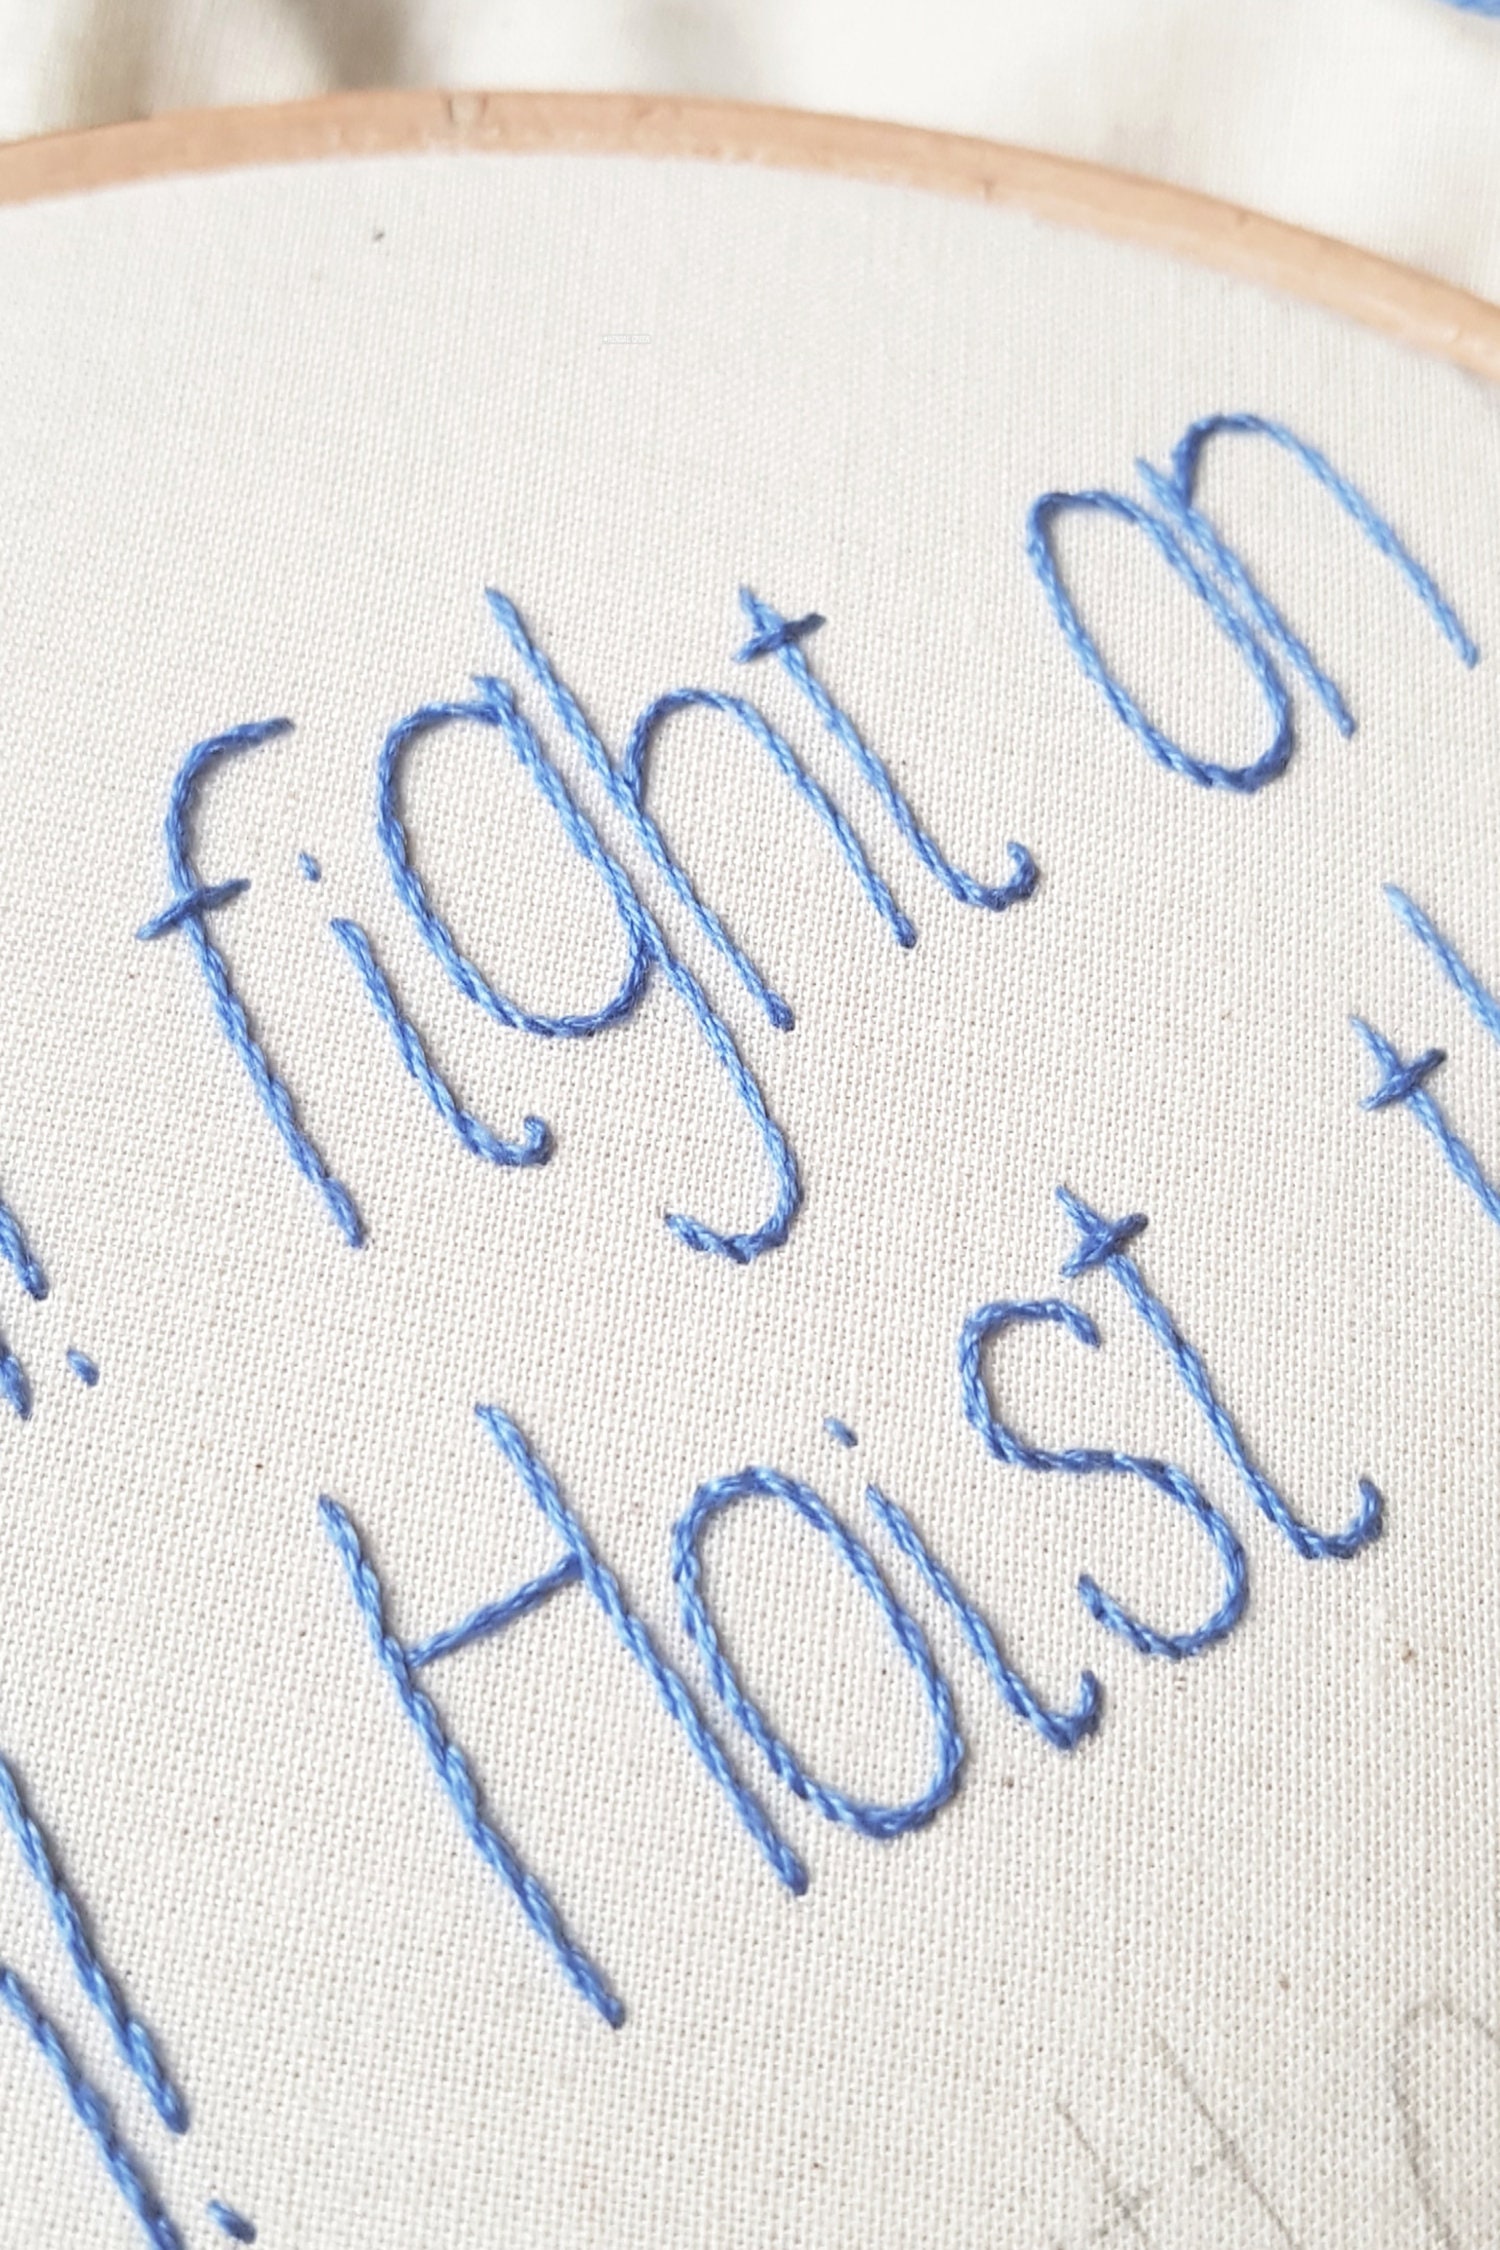 fight on
Hoist t